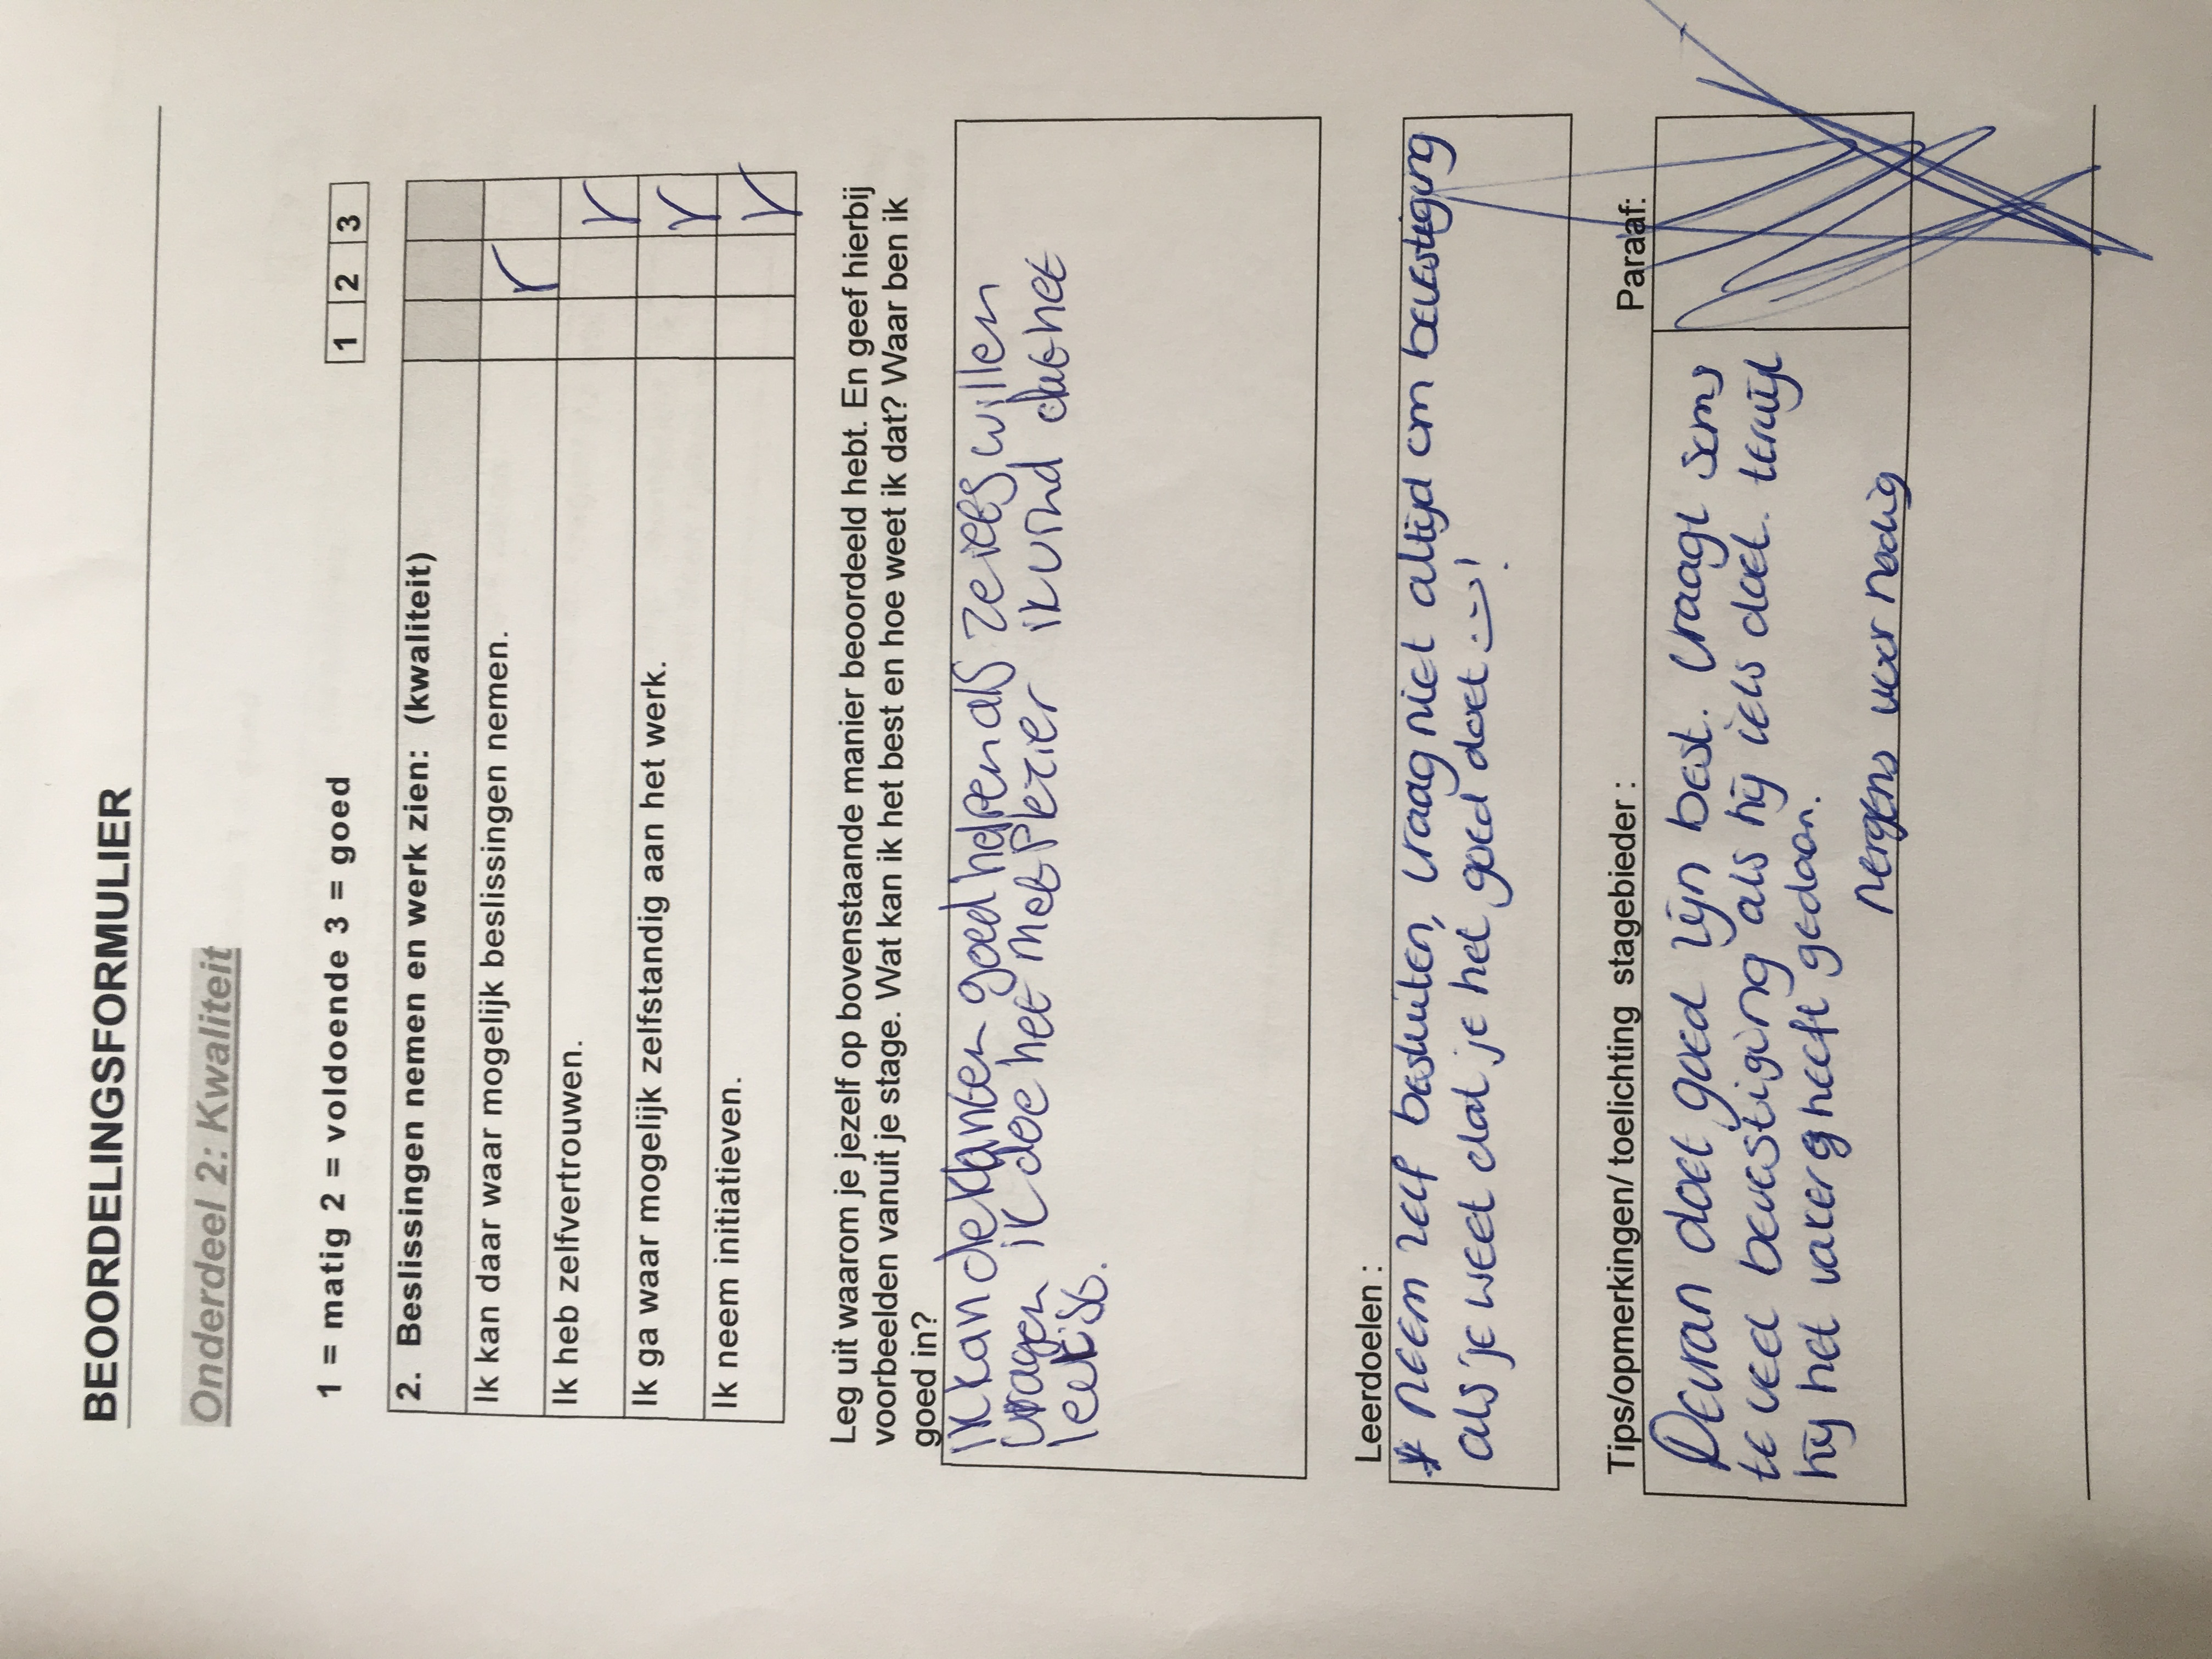 BEOORDELINGSFORMULIER
Onderdeel 2: Kwaliteit
1 = matig 2 = voldoende 3 = goed
1 2 3
2. Beslissingen nemen en werk zien: (kwaliteit)
Ik kan daar waar mogelijk beslissingen nemen.
Ik heb zelfvertrouwen.
Ik ga waar mogelijk zelfstandig aan het werk.
Ik neem initiatieven.
Leg uit waarom je jezelf op bovenstaande manier beoordeeld hebt. En geef hierbij
voorbeelden vanuit je stage. Wat kan ik het best en hoe weet ik dat? Waar ben ik
goed in?
Ik kan de klanten goed helpen als ze iets willen
vragen ik doe het met plezier ik vind dat het
leuk is.
Leerdoelen :
* neem zelf besluiten, vraag niet altijd om bevestiging
als je weet dat je het goed doet :-)!
Tips/opmerkingen/ toelichting stagebieder :
Paraaf:
Devran doet goed zijn best. Vraagt soms
te veel bevestiging als hij iets doet. terwijl
hij het vaker heeft gedaan.
nergens voor nodig